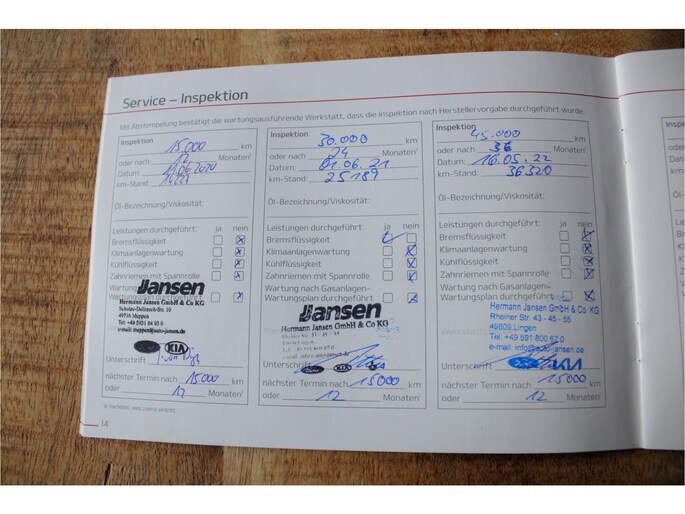 Service – Inspektion
Mit Abstempelung bestätigt die wartungsausführende Werkstatt, dass die Inspektion nach Herstellervorgabe durchgeführt wurde.
Inspektion 15000 km
oder nach 12 Monaten¹
Datum: .06.2020
km-Stand:
Öl-Bezeichnung/Viskosität:
Leistungen durchgeführt: ja nein
Bremsflüssigkeit x
Klimaanlagenwartung x
Kühlflüssigkeit x
Zahnriemen mit Spannrolle x
Wartung
Wartungsplan durchgeführt: x
Jansen
Hermann Jansen GmbH & Co KG
49716 Meppen
Unterschrift
KIA
nächster Termin nach 15000 km
oder 12 Monaten¹
Inspektion 30.000 km
oder nach 24 Monaten¹
Datum: 01.06.21
km-Stand: 25189
Öl-Bezeichnung/Viskosität:
Leistungen durchgeführt: ja nein
Bremsflüssigkeit
Klimaanlagenwartung x
Kühlflüssigkeit x
Zahnriemen mit Spannrolle x
Wartung nach Gasanlagen-
Wartungsplan durchgeführt: x
Jansen
Hermann Jansen GmbH & Co KG
Unterschrift
KIA
nächster Termin nach 15000 km
oder 12 Monaten¹
Inspektion 45.000 km
oder nach 36 Monaten¹
Datum: 16.05.22
km-Stand: 36320
Öl-Bezeichnung/Viskosität:
Leistungen durchgeführt: ja nein
Bremsflüssigkeit x
Klimaanlagenwartung x
Kühlflüssigkeit x
Zahnriemen mit Spannrolle x
Wartung nach Gasanlagen-
Wartungsplan durchgeführt: x
Hermann Jansen GmbH & Co. KG
Rheiner Str. 43 - 45 - 55
49809 Lingen
Tel. +49 591 800 67 0
e-mail: info@auto-jansen.de
Unterschrift
KIA
nächster Termin nach 15000 km
oder 12 Monaten¹
14